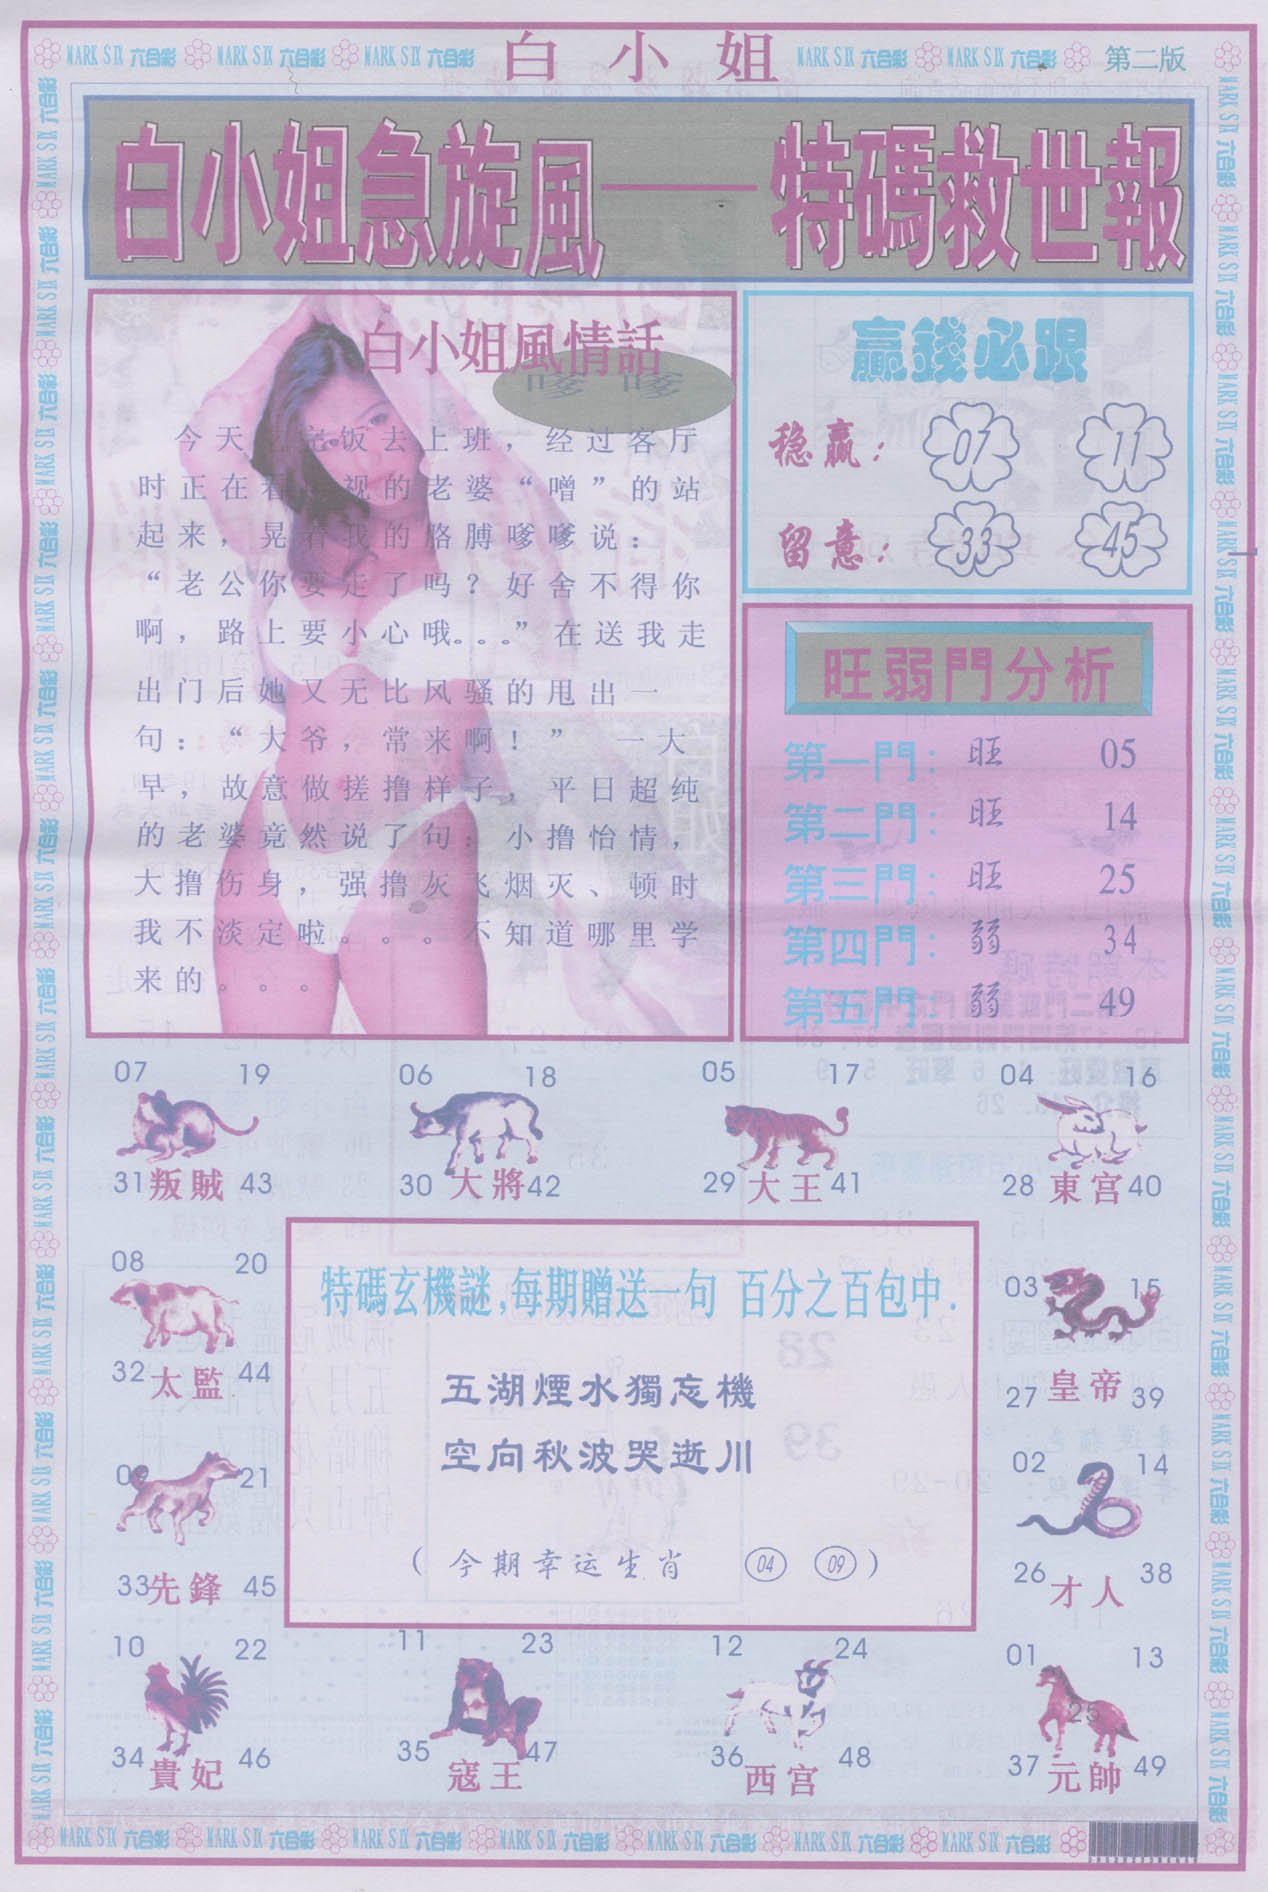 MARK SIX 六合彩 MARK SIX 六合彩 MARK SIX 六合彩 白小姐 MARK SIX 六合彩 MARK SIX 六合彩 第二版
白小姐急旋風——特碼救世報
白小姐風情話
嗲嗲
今天吃完饭去上班，经过客厅
时正在看电视的老婆“噌”的站
起来，晃着我的胳膊嗲嗲说：
“老公你要走了吗？好舍不得你
啊，路上要小心哦。。。”在送我走
出门后她又无比风骚的甩出一
句：“大爷，常来啊！” 一大
早，故意做搓撸样子，平日超纯
的老婆竟然说了句：小撸怡情，
大撸伤身，强撸灰飞烟灭、顿时
我不淡定啦。。。不知道哪里学
来的。。。
贏錢必跟
稳赢： 07 11
留意： 33 45
旺弱門分析
第一門： 旺 05
第二門： 旺 14
第三門： 旺 25
第四門： 弱 34
第五門： 弱 49
07 19
31 叛賊 43
06 18
30 大將 42
05 17
29 大王 41
04 16
28 東宫 40
08 20
32 太監 44
03 15
27 皇帝 39
特碼玄機謎,每期贈送一句 百分之百包中.
五湖煙水獨忘機
空向秋波哭逝川
（今期幸运生肖 04 09）
09 21
33 先鋒 45
02 14
26 才人 38
10 22
34 貴妃 46
11 23
35 寇王 47
12 24
36 西宫 48
01 13
25
37 元帥 49
MARK SIX 六合彩 MARK SIX 六合彩 MARK SIX 六合彩 MARK SIX 六合彩 MARK SIX 六合彩 MARK SIX 六合彩 MARK SIX 六合彩